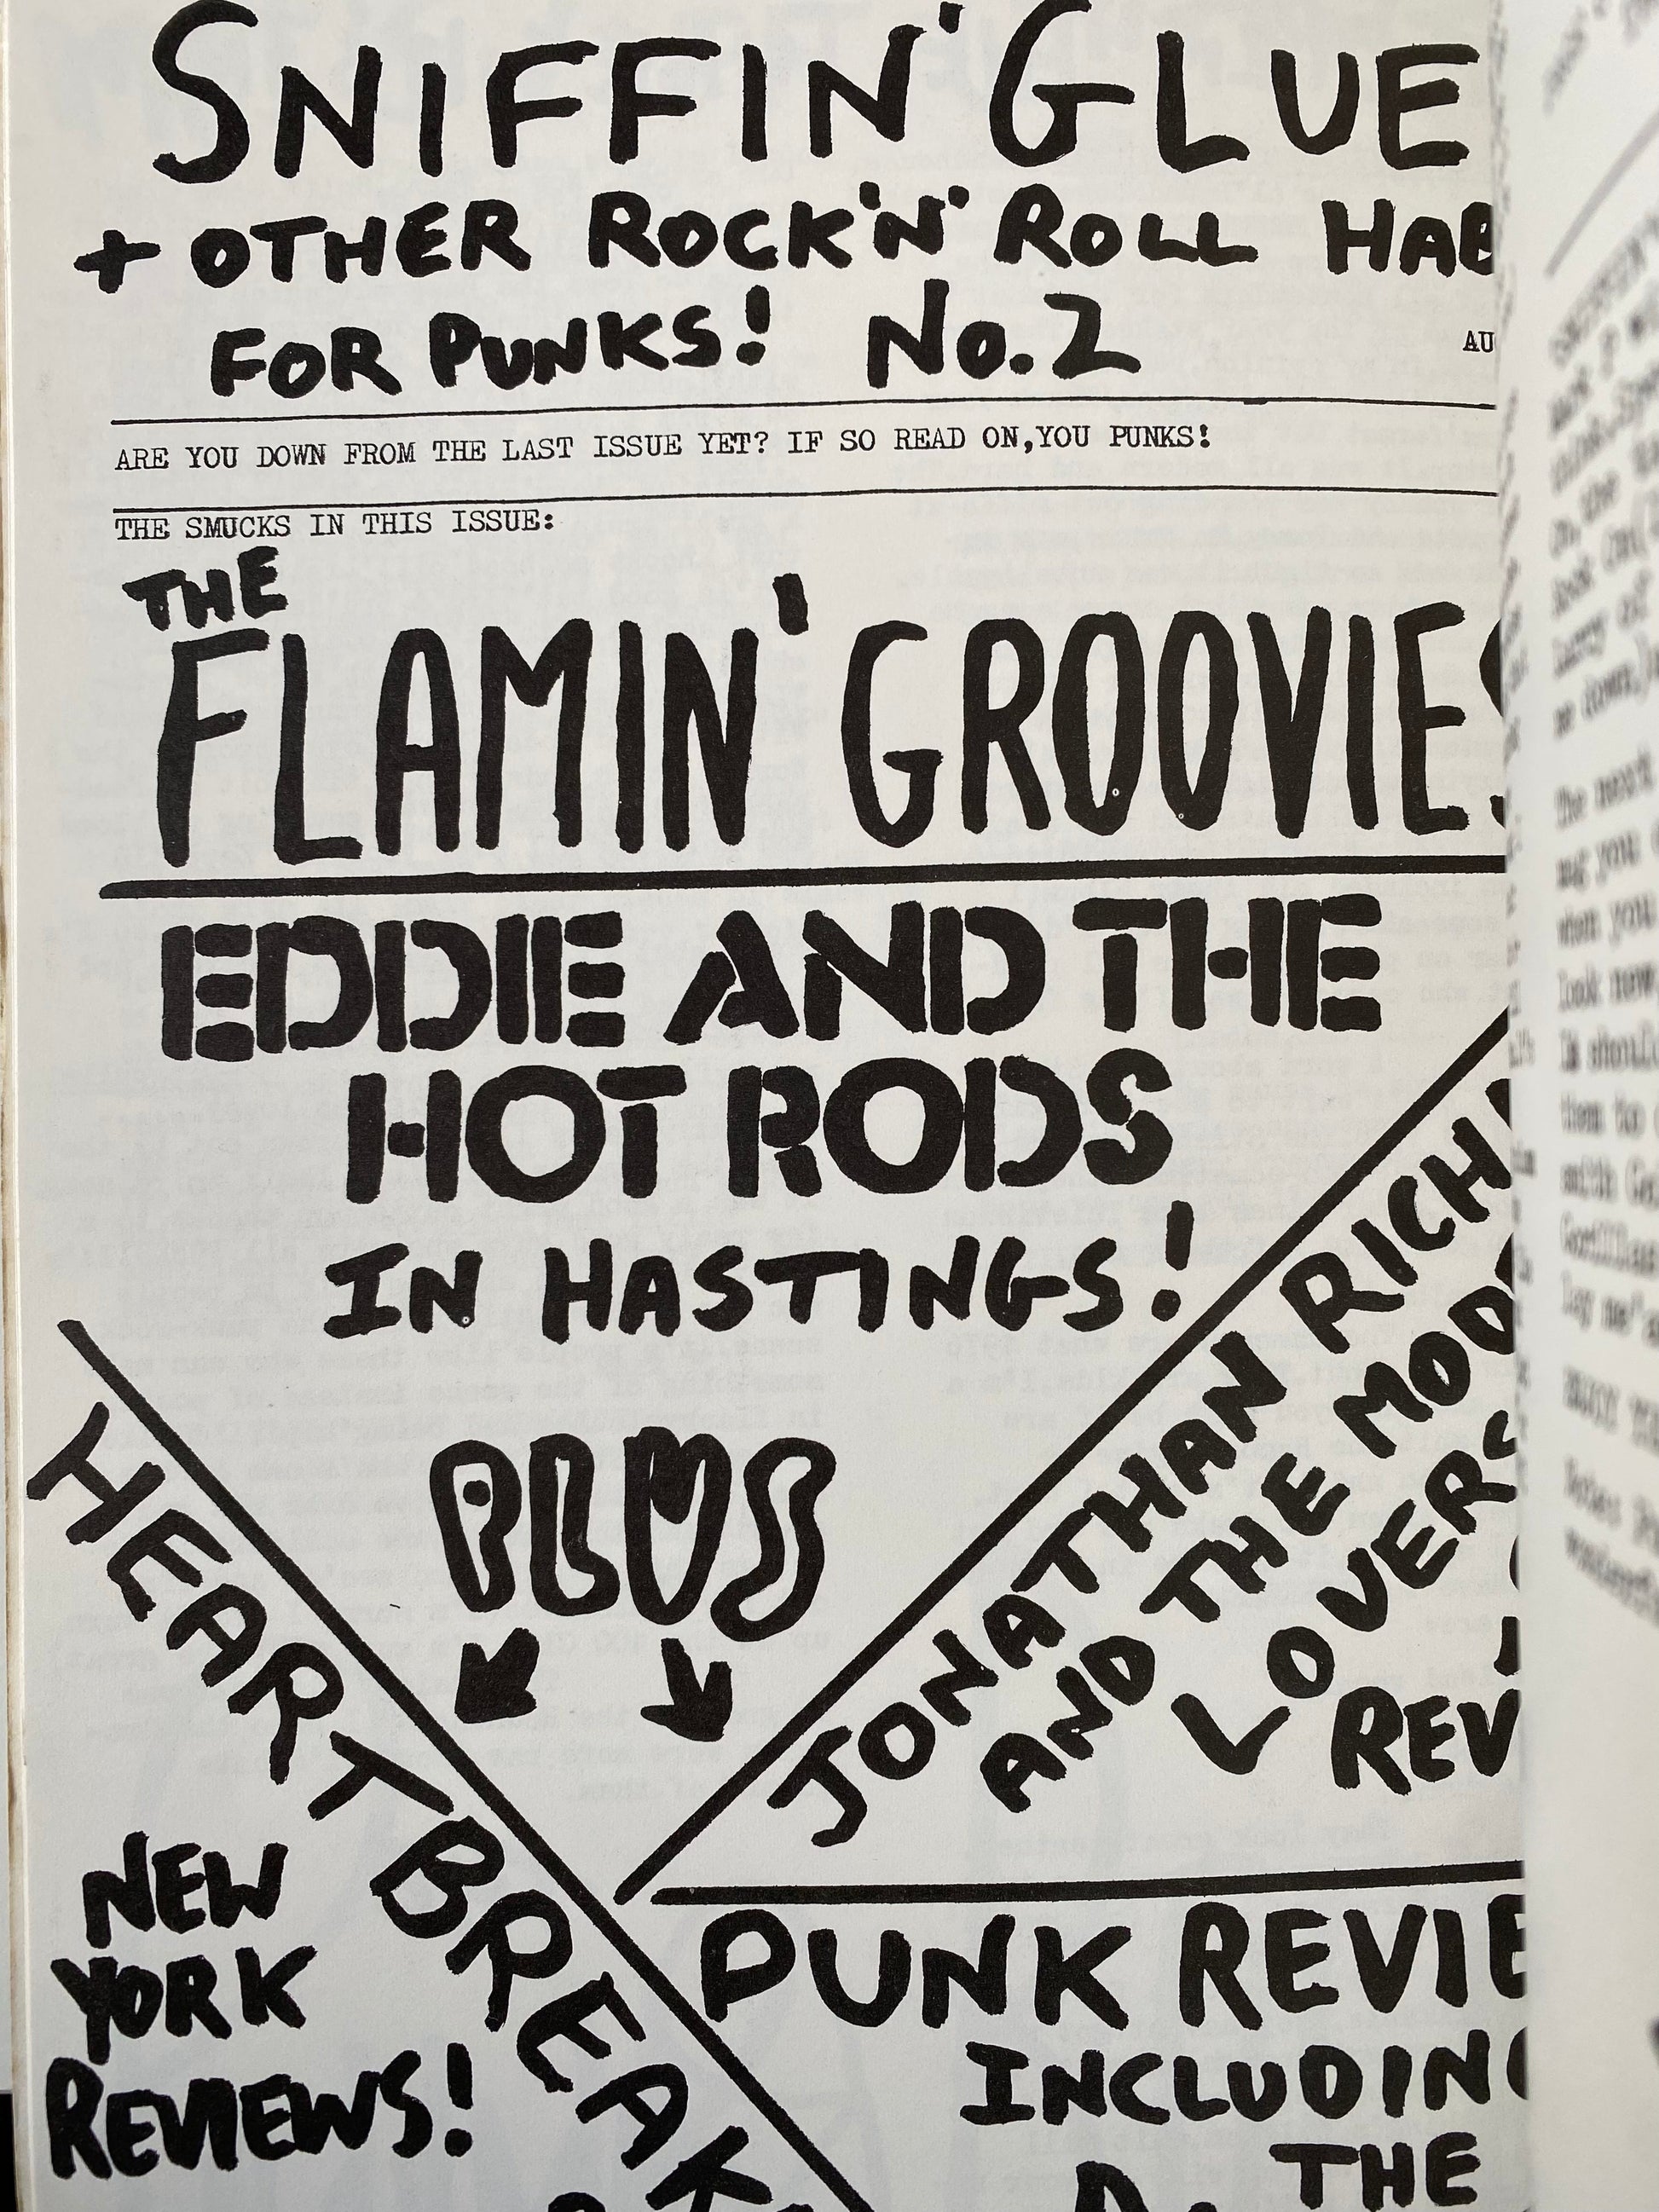 SNIFFIN' GLUE
+ OTHER ROCK'N'ROLL HAB
FOR PUNKS! No.2
AU
ARE YOU DOWN FROM THE LAST ISSUE YET? IF SO READ ON,YOU PUNKS!
THE SMUCKS IN THIS ISSUE:
THE
FLAMIN' GROOVIES
EDDIE AND THE
HOT RODS
IN HASTINGS!
PLUS
HEARTBREAK
JONATHAN RICH
AND THE MOD
LOVERS
REV
NEW
YORK
REVIEWS!
PUNK REVIE
INCLUDING
THE